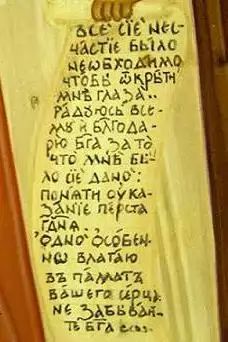 всѐ сїѐ нес-
частїе бы́ло
неѡбходи́мо
что́бы ѿкры́ти
мнѣ̀ глаза̀..
ра́дуюсь все-
му̀ и҆ бл҃года-
рю̀ бг҃а за то̀
что̀ мнѣ̀ бы́-
ло сїѐ дано̀:
поня́ти ѹ҆ка-
за́нїе перста̀
гдⷭ҇ня.
ѻ҆дно̀ ѻ҆собен-
нѡ влага́ю
въ па́мять
ва́шего се́рдца
не забыва́й-
те бг҃а